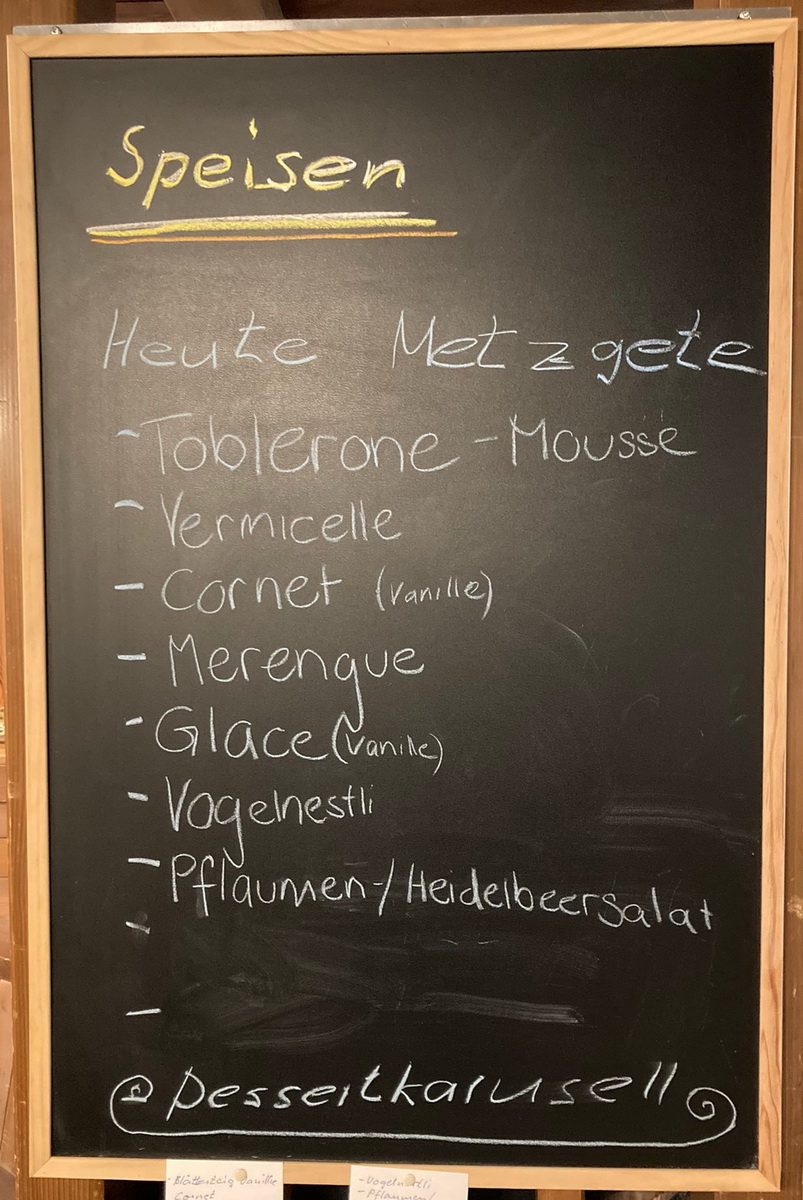 Speisen
Heute Metzgete
- Toblerone-Mousse
- Vermicelle
- Cornet (Vanille)
- Merengue
- Glace (Vanille)
- Vogelnestli
- Pflaumen-/Heidelbeersalat
-
-
Dessertkarusell
- Blätterteig Vanille
Cornet
- Vogelnestli
- Pflaumen/